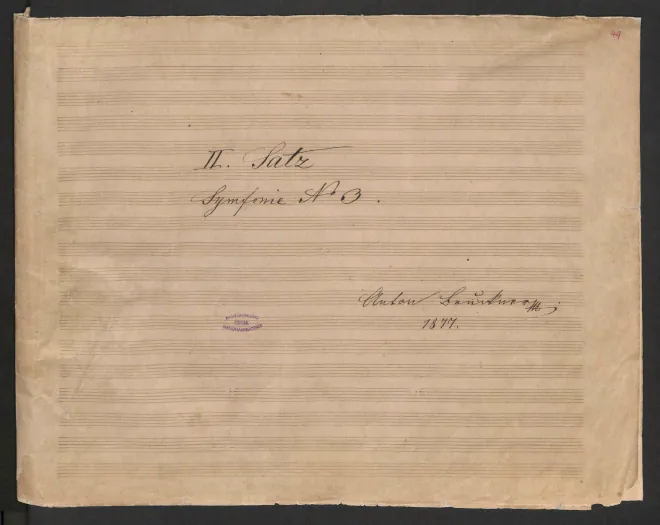 49
II. Satz
Symfonie No 3.
Anton Bruckner
1877.